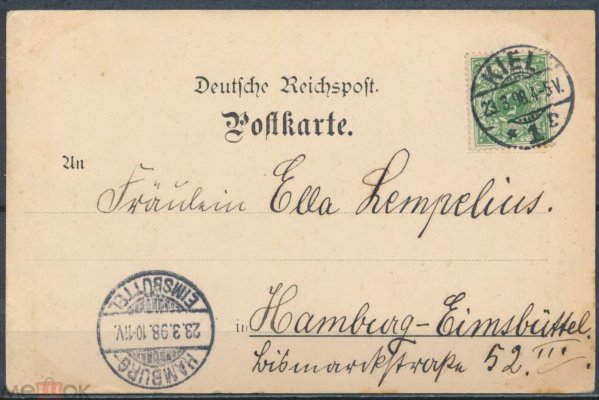 Deutsche Reichspost.
Postkarte.
KIEL
23.3.98.4-5V.
* 1 E
An
Fräulein Ella Lempelius.
in Hamburg-Eimsbüttel.
Bismarckstraße 52.III.
EIMSBÜTTEL
23.3.98.10-11V.
HAMBURG
мешок